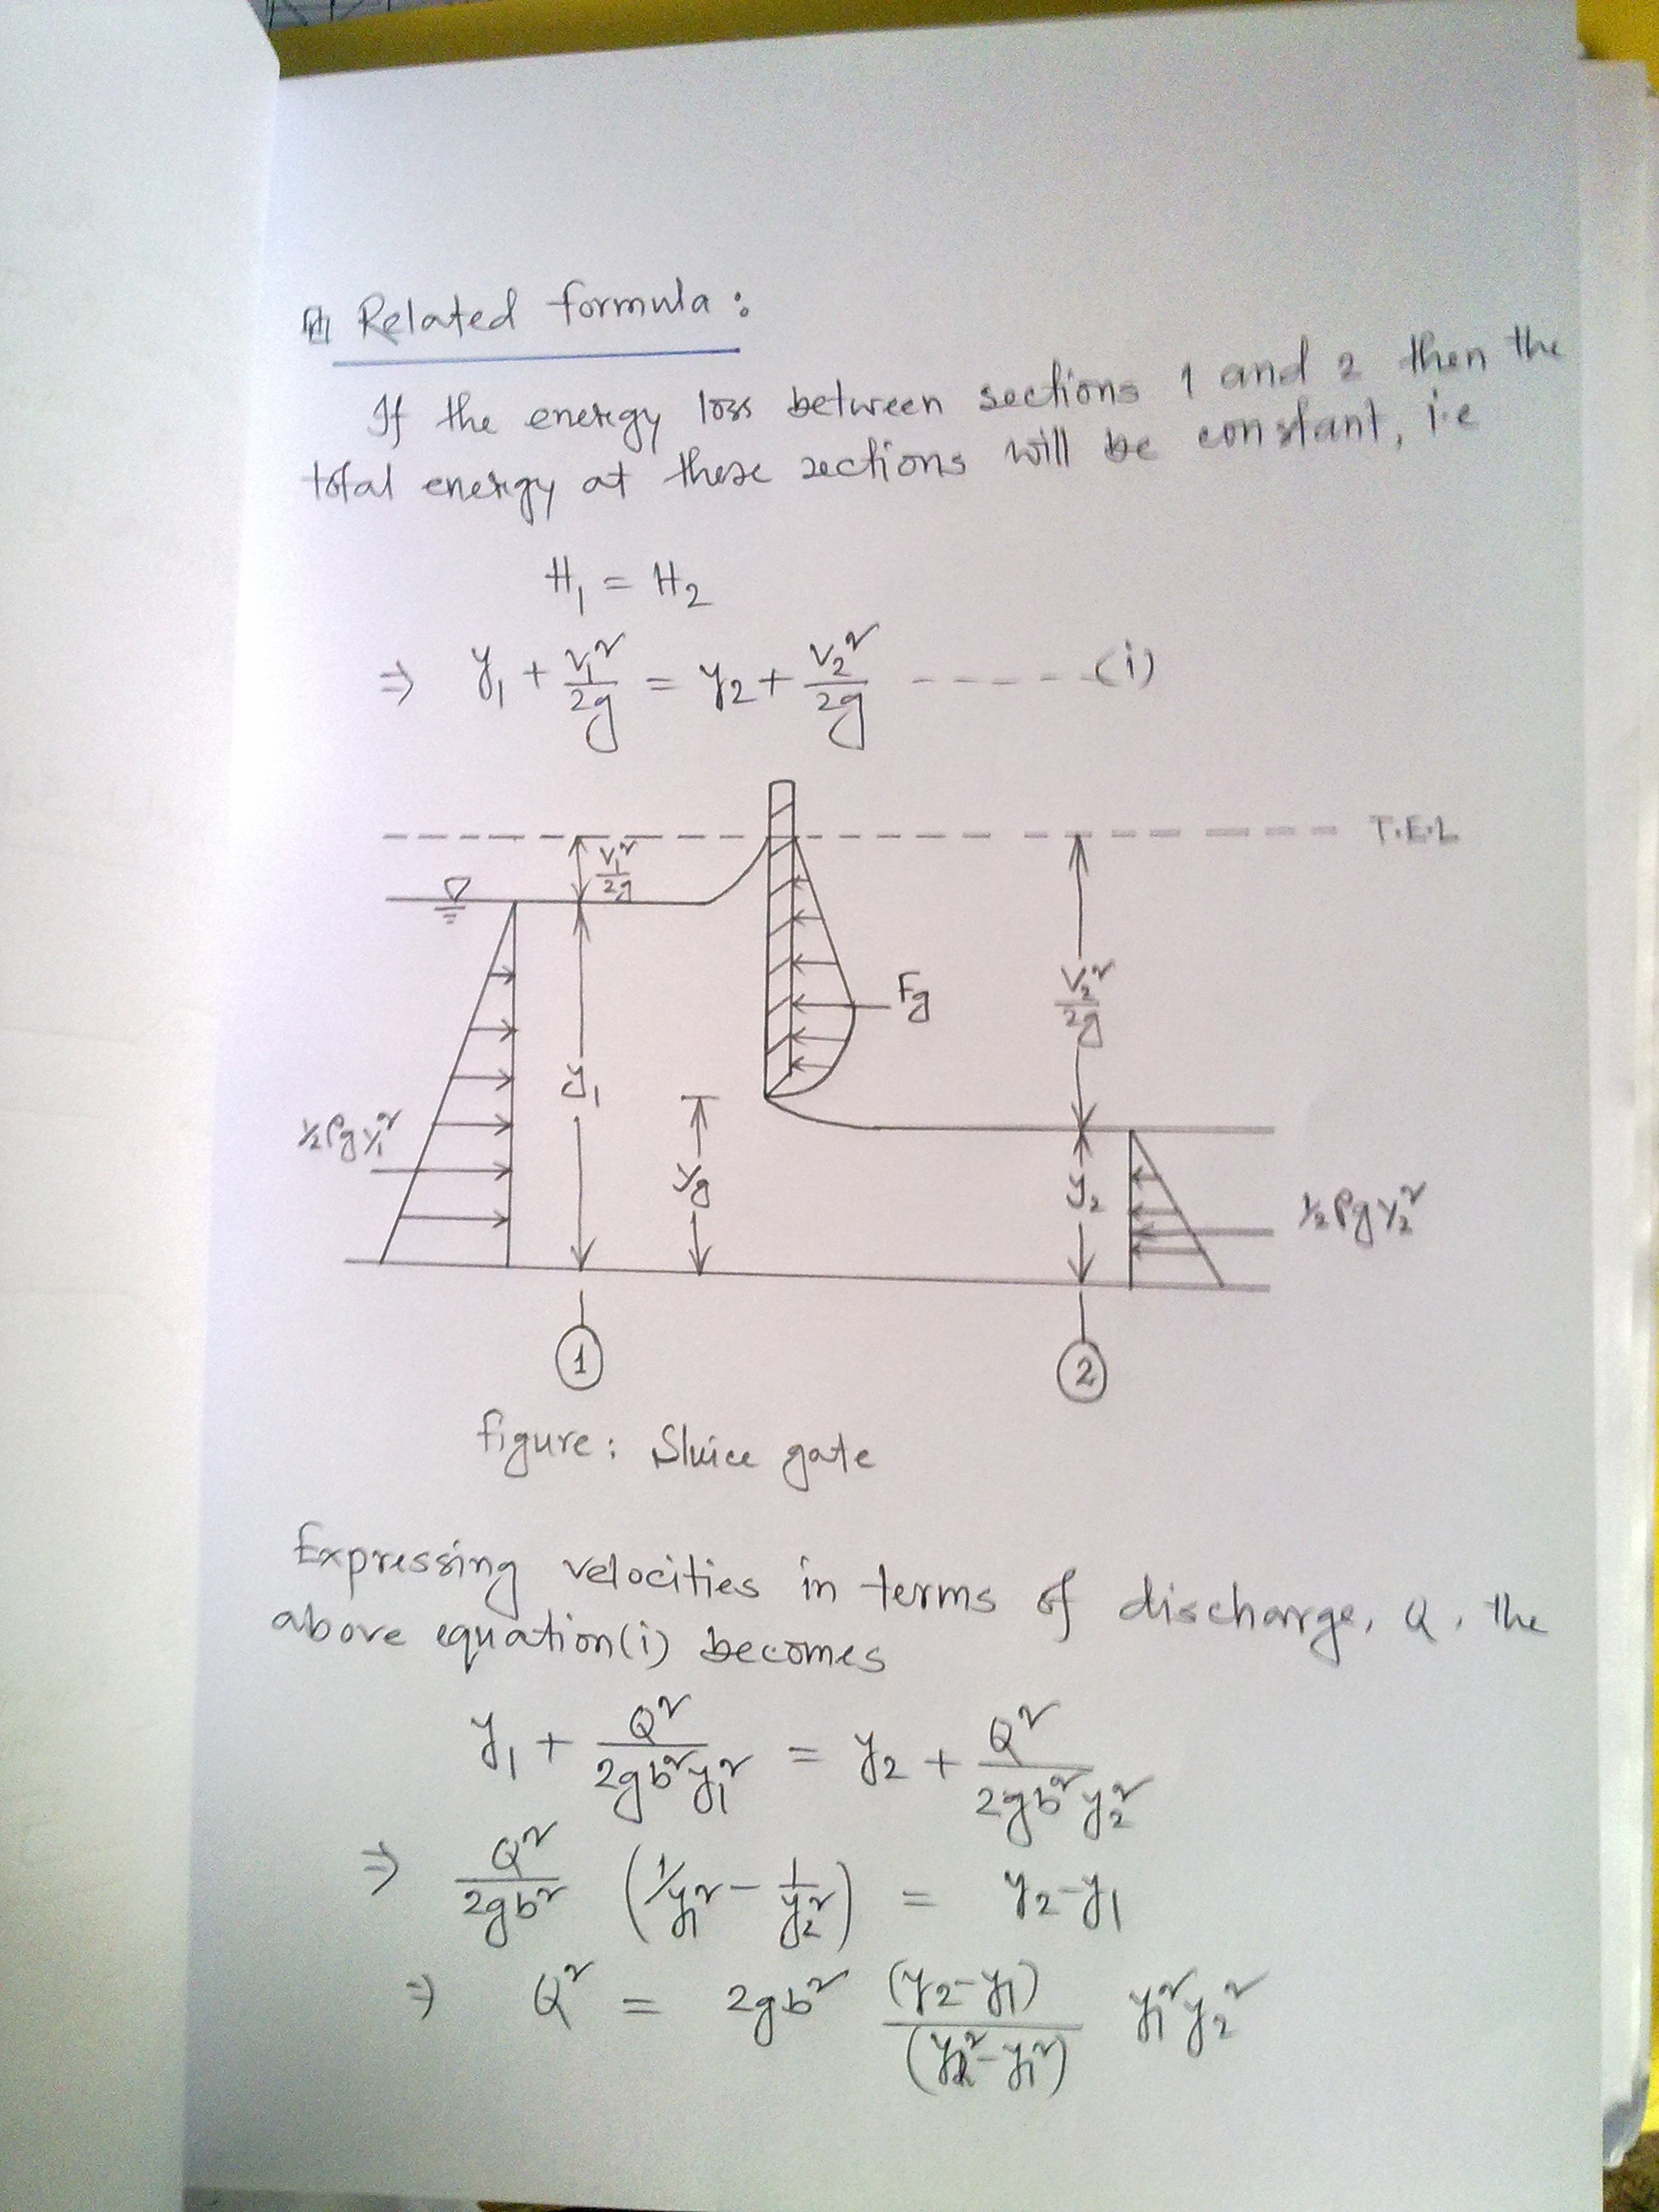 Related formula :
If the energy loss between sections 1 and 2 then the
total energy at these sections will be constant, i.e
H₁ = H₂
⇒ y₁ + V₁²/2g = y₂ + V₂²/2g ----- (i)
T.E.L
V₁²/2g
Fg
V₂²/2g
y₁
½ρgy₁²
yg
y₂
½ρgy₂²
1
2
figure: Sluice gate
Expressing velocities in terms of discharge, Q, the
above equation(i) becomes
y₁ + Q²/2gb²y₁² = y₂ + Q²/2gb²y₂²
⇒ Q²/2gb² (1/y₁² - 1/y₂²) = y₂-y₁
⇒ Q² = 2gb² (y₂-y₁)/(y₂²-y₁²) y₁²y₂²